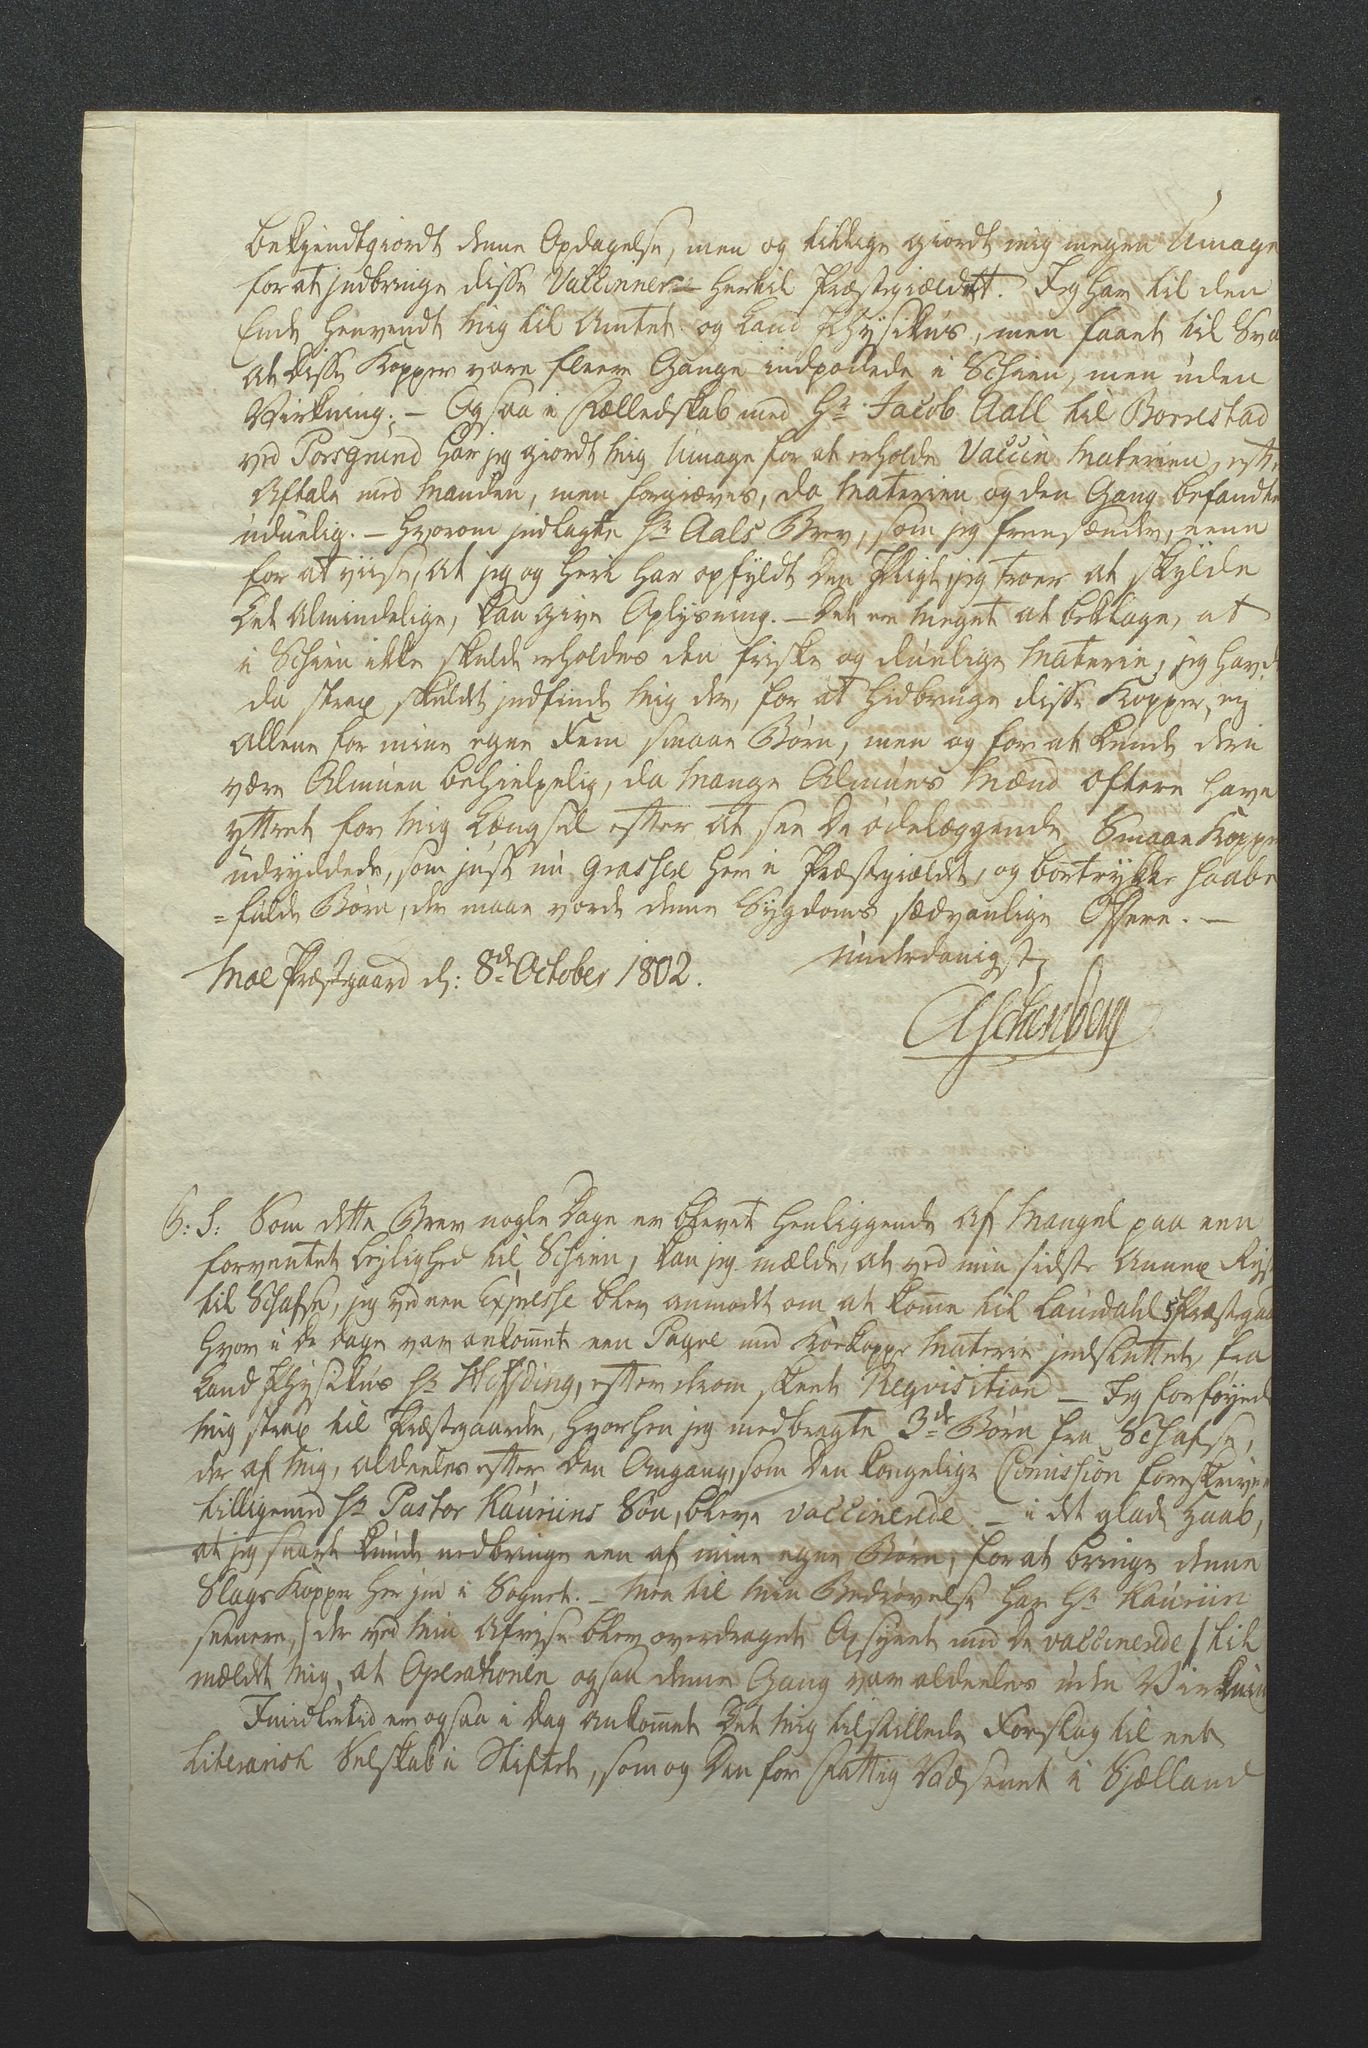 bekyendtgiordt denne Opdagelse, men og tillige giordt mig megen Umage
for at jndbringe disse Vaccinner hertil Præstegieldet. Jeg har til den
Ende henvendt mig til Amtet og Land Physikus, men faaet til Sva
at disse Kopper vare fleere Gange indpodede i Schien, men uden
Virkning. – Ogsaa i Fælledskab med Hr Jacob Aall til Borrestad
ved Porsgrund har jeg giordt mig Umage for at erholde Vaccin Materien, efte
Aftale med Manden, men forgiæves, da Materien og den Gang befandtes
uduelig. – Hvorom jndlagte Hr Aals Brev, som jeg fremsender, eene
for at viise, at jeg og heri har opfyldt den Pligt, jeg troer at skylde
Det Almindelige, kan give Oplysning. – Det er meget at beklage, at
i Schien ikke skulde erholdes den friske og duelige Materie; jeg havde
da strax skuldet jndfinde mig der, for at hidbringe disse Kopper, ej
allene for mine egne Fem smaae Børn, men og for at kunde deri
være Almuen behielpelig, da mange Almues Mænd oftere have
yttret for mig Længsel efter at see De ødelæggende Smaae Kopper
udryddede, som just nu grassere her i Præstegieldet, og bortrykke haabe
=fulde Børn, der maae vorde denne Sygdoms sædvanlige Offere. –
Moe Præstegaard d: 8de October 1802. underdanigst
Aschenberg
P: S: Som dette Brev nogle Dage er blevet henliggende af Mangel paa een
forventet Lejlighed til Schien, kan jeg melde, at ved min sidste Annex Rejse
til Schafse, jeg ved een Expresse blev anmodt om at komme til Laurdahls Præstegaa
hvor i de Dage var ankommet een Paqve med Koekoppe Materie jndsluttet, fra
Land Physikus Hr Höffding, efter derom skeet Reqvisition – Jeg forføyede
mig strax til Præstegaarden, hvorhen jeg medbragte 3de Børn fra Schafse,
der af mig, aldeeles efter den Omgang, som Den kongelige Comission foreskriver
tilligemed Hr Pastor Kauriins Søn, bleve vaccinerede. – i det glade Haab,
at jeg snart kunde nedbringe een af mine egne Børn, for at bringe denne
Slags Kopper her jnd i Sognet. – Men til min Bedrøvelse har Hr Kauriin
senere, / der ved min Afreyse blev overdraget Opsynet med De vaccinerede / til
mældt mig, at Operationen ogsaa denne Gang var aldeeles uden Virkning
Imidlertid er ogsaa i Dag ankommet Det mig tilstillede Forslag til eet
Literarisk Selskab i Stiftet, som og Den for Fattig Væsenet i Sjælland